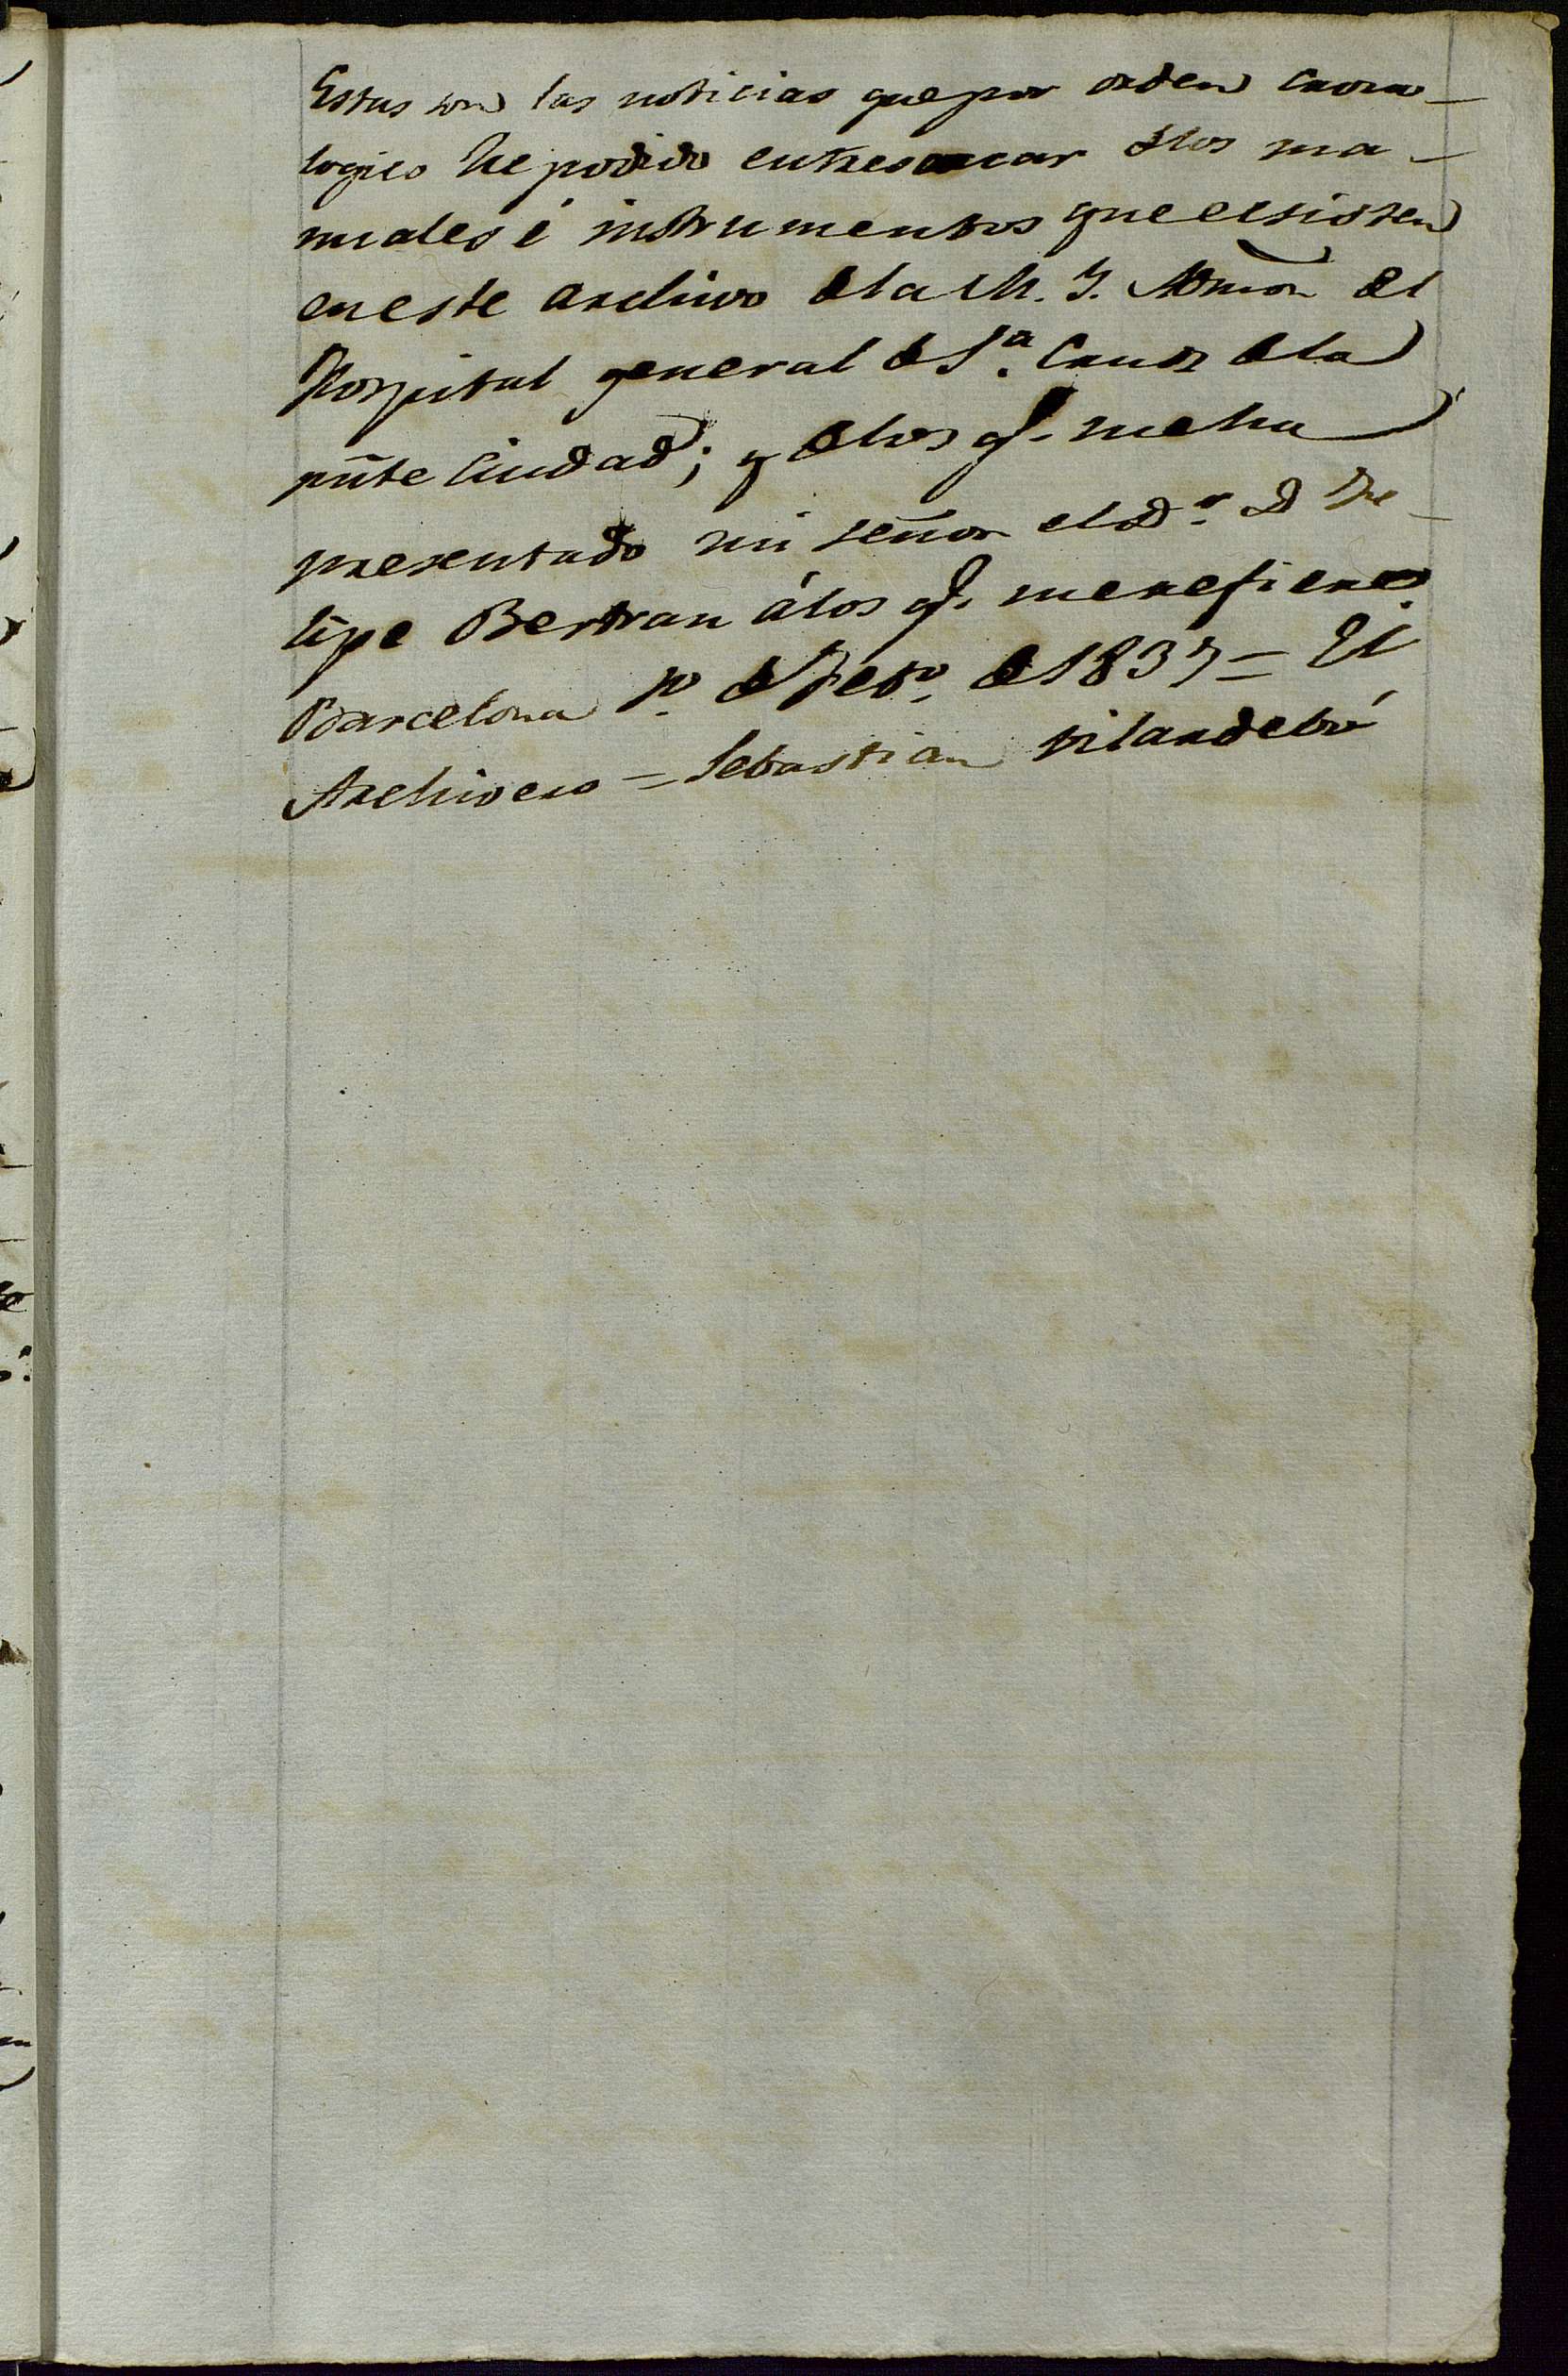 Estas son las noticias que por orden crono-
logico he podido entresacar dlos ma-
nuales é instrumentos que ecsisten
en este archivo dla M. Y. Admon̄ del
Hospital general de Sta. Cruz dla
pnt̃e Ciudad; y dlos q̃. me ha
presentado mi señor el Dr. D. Fe-
lipe Bertran á los q̃. me refiero.
Barcelona 1o. de Febo. de 1837 = El
Archivero = Sebastian Vilardebó